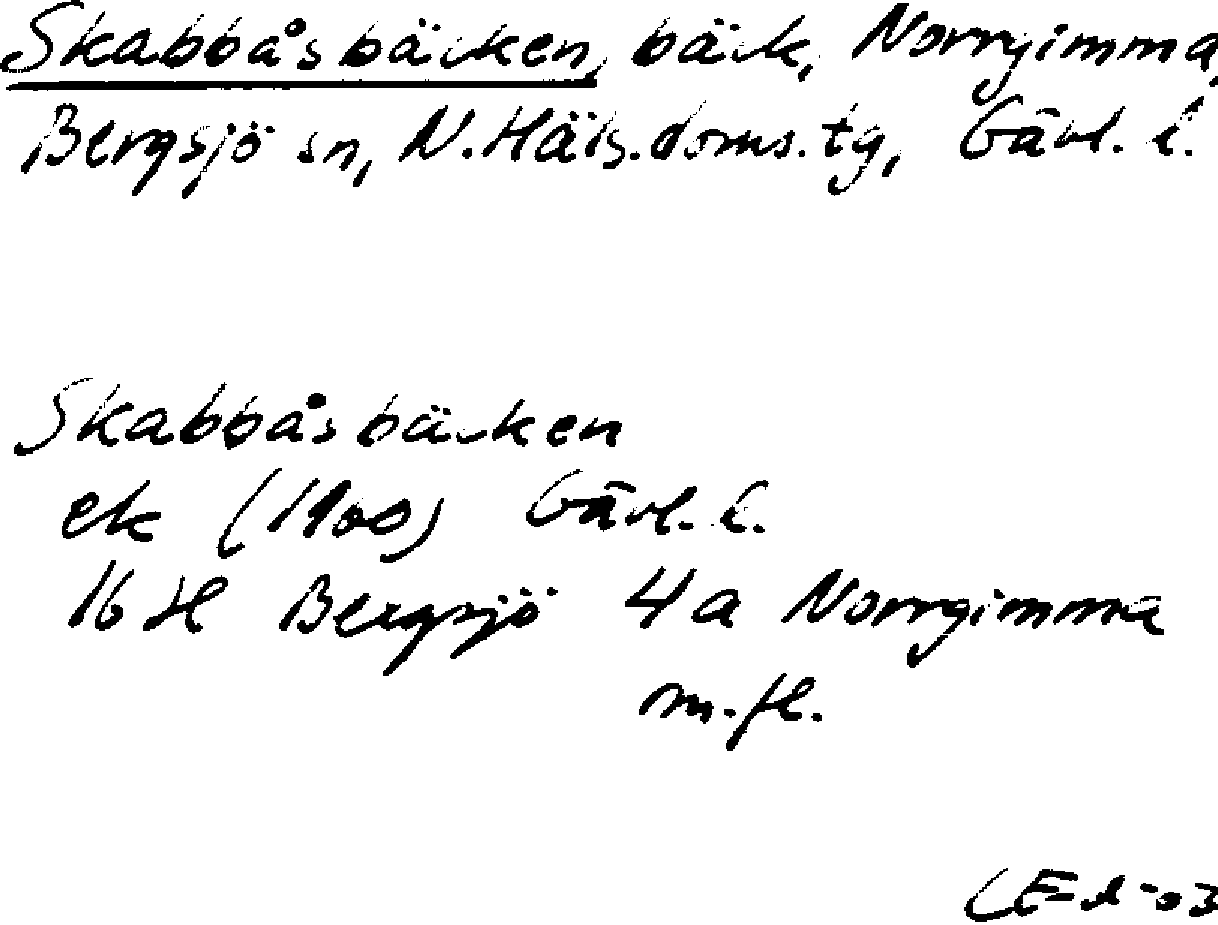 Skabbåsbäcken, bäck, Norrgimma,
Bergsjö sn, N.Häls.doms.tg, Gävl. l.
Skabbåsbäcken
ek (1900) Gävl. l.
16 H Bergsjö 4a Norrgimma
m.fl.